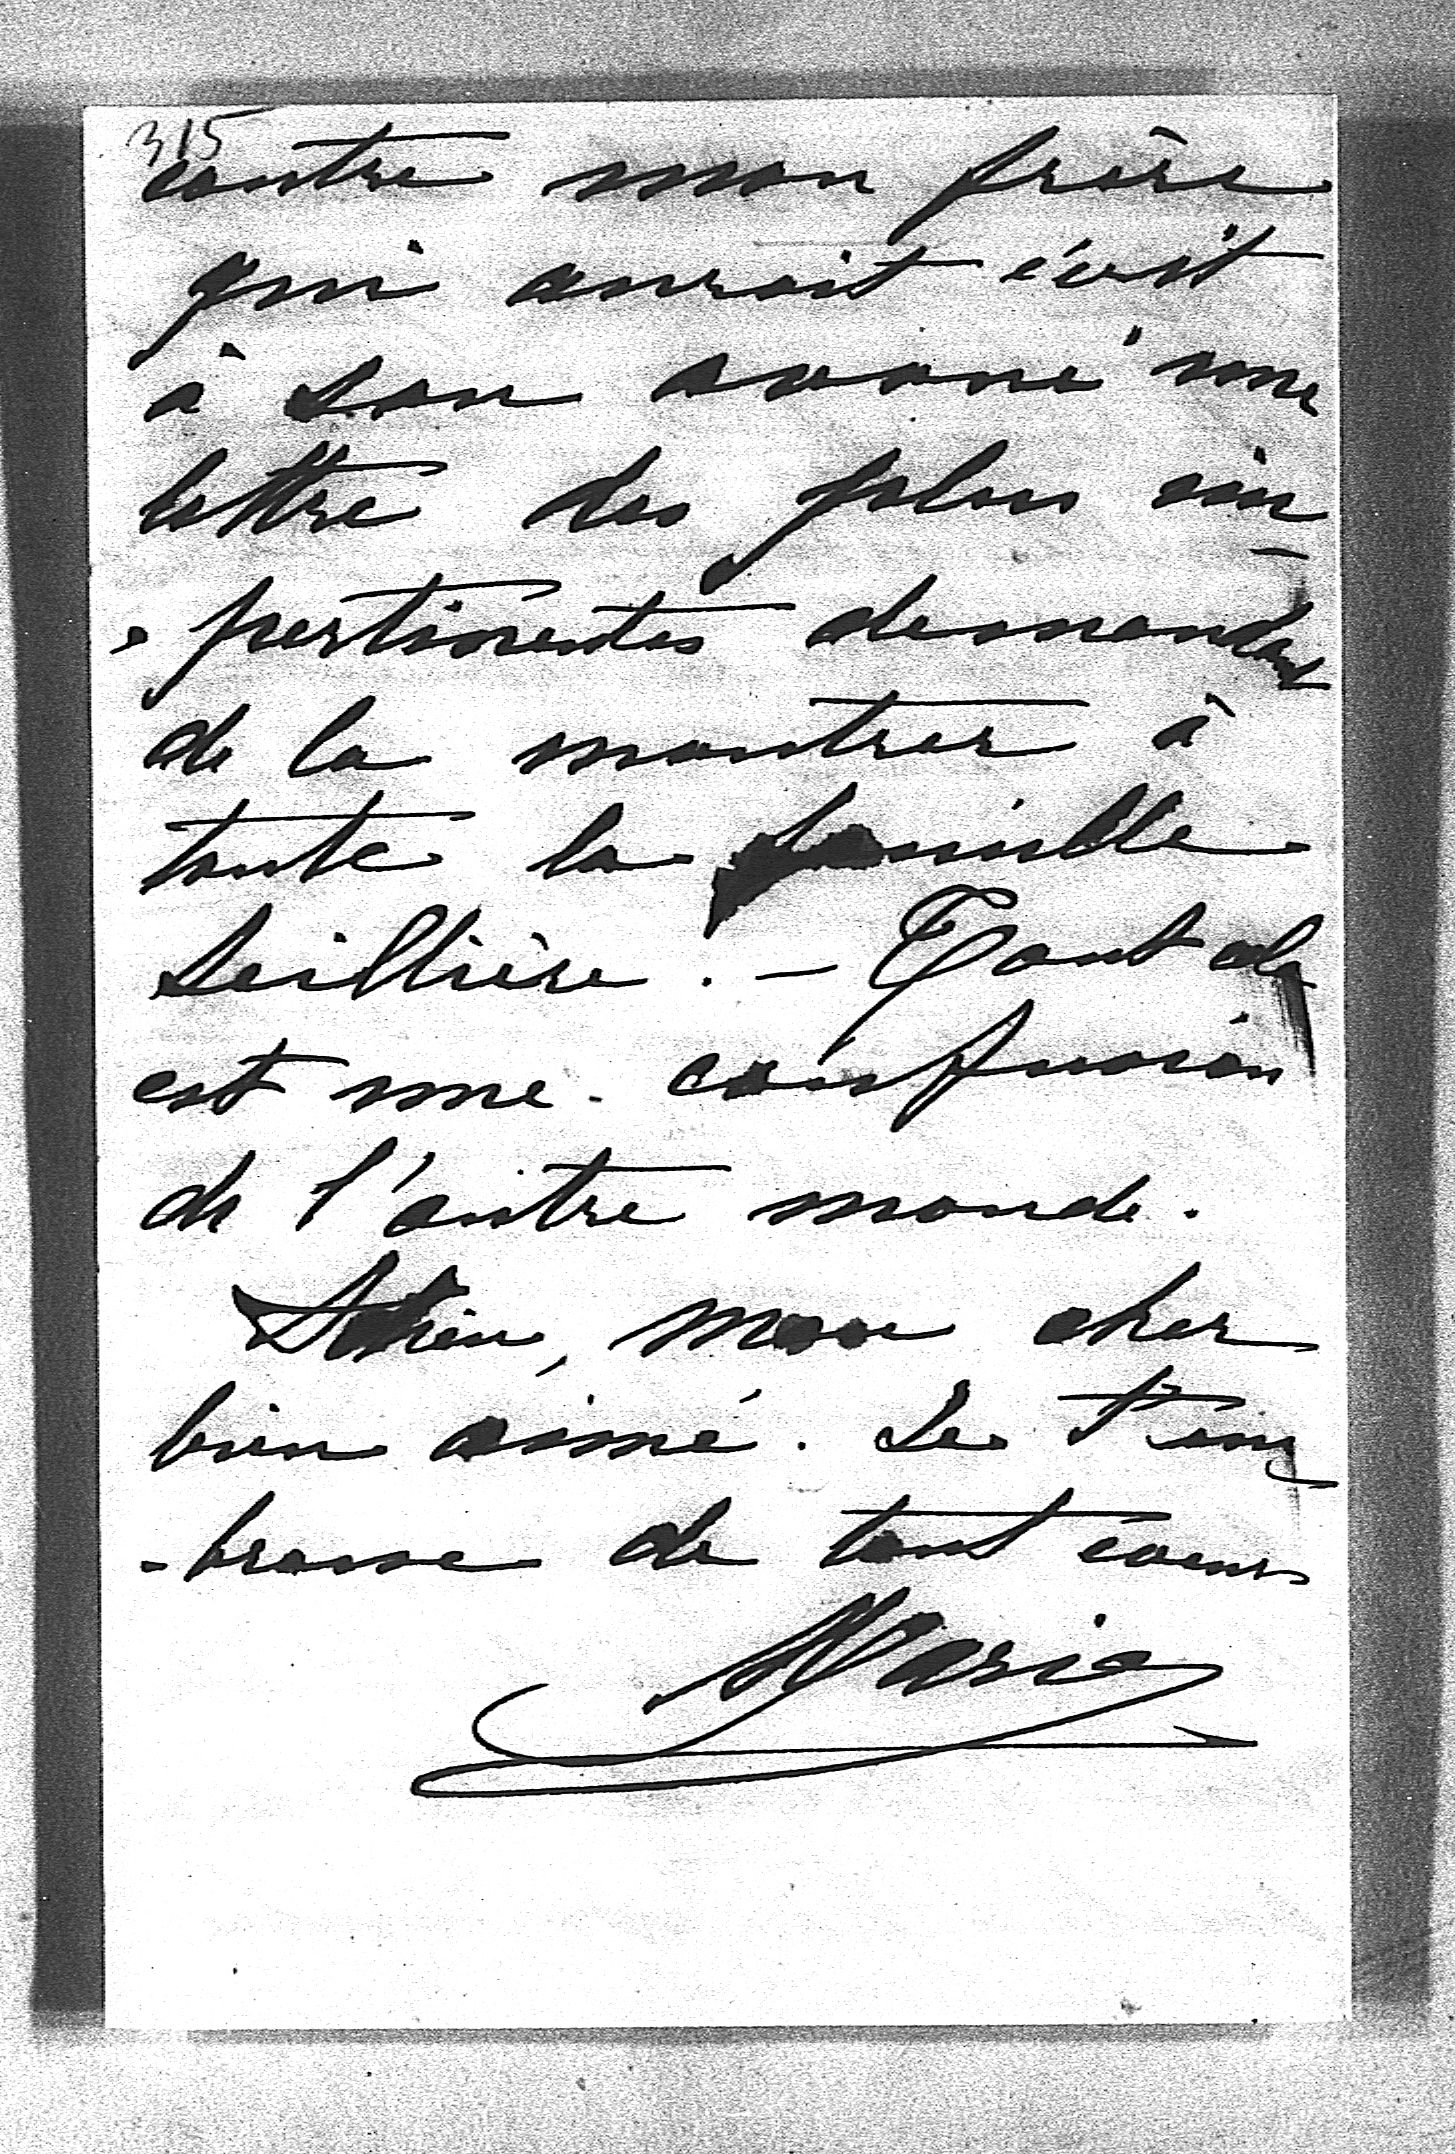 315
contre mon frère
qui aurait écrit
à son avoué une
lettre des plus im
-pertinentes demandant
de la montrer à
toute la famille
Seillière. — Tout cela
est une confusion
de l'autre monde.
Adieu, mon cher
bien aimé. Je t'em
-brasse de tout coeur
Marie